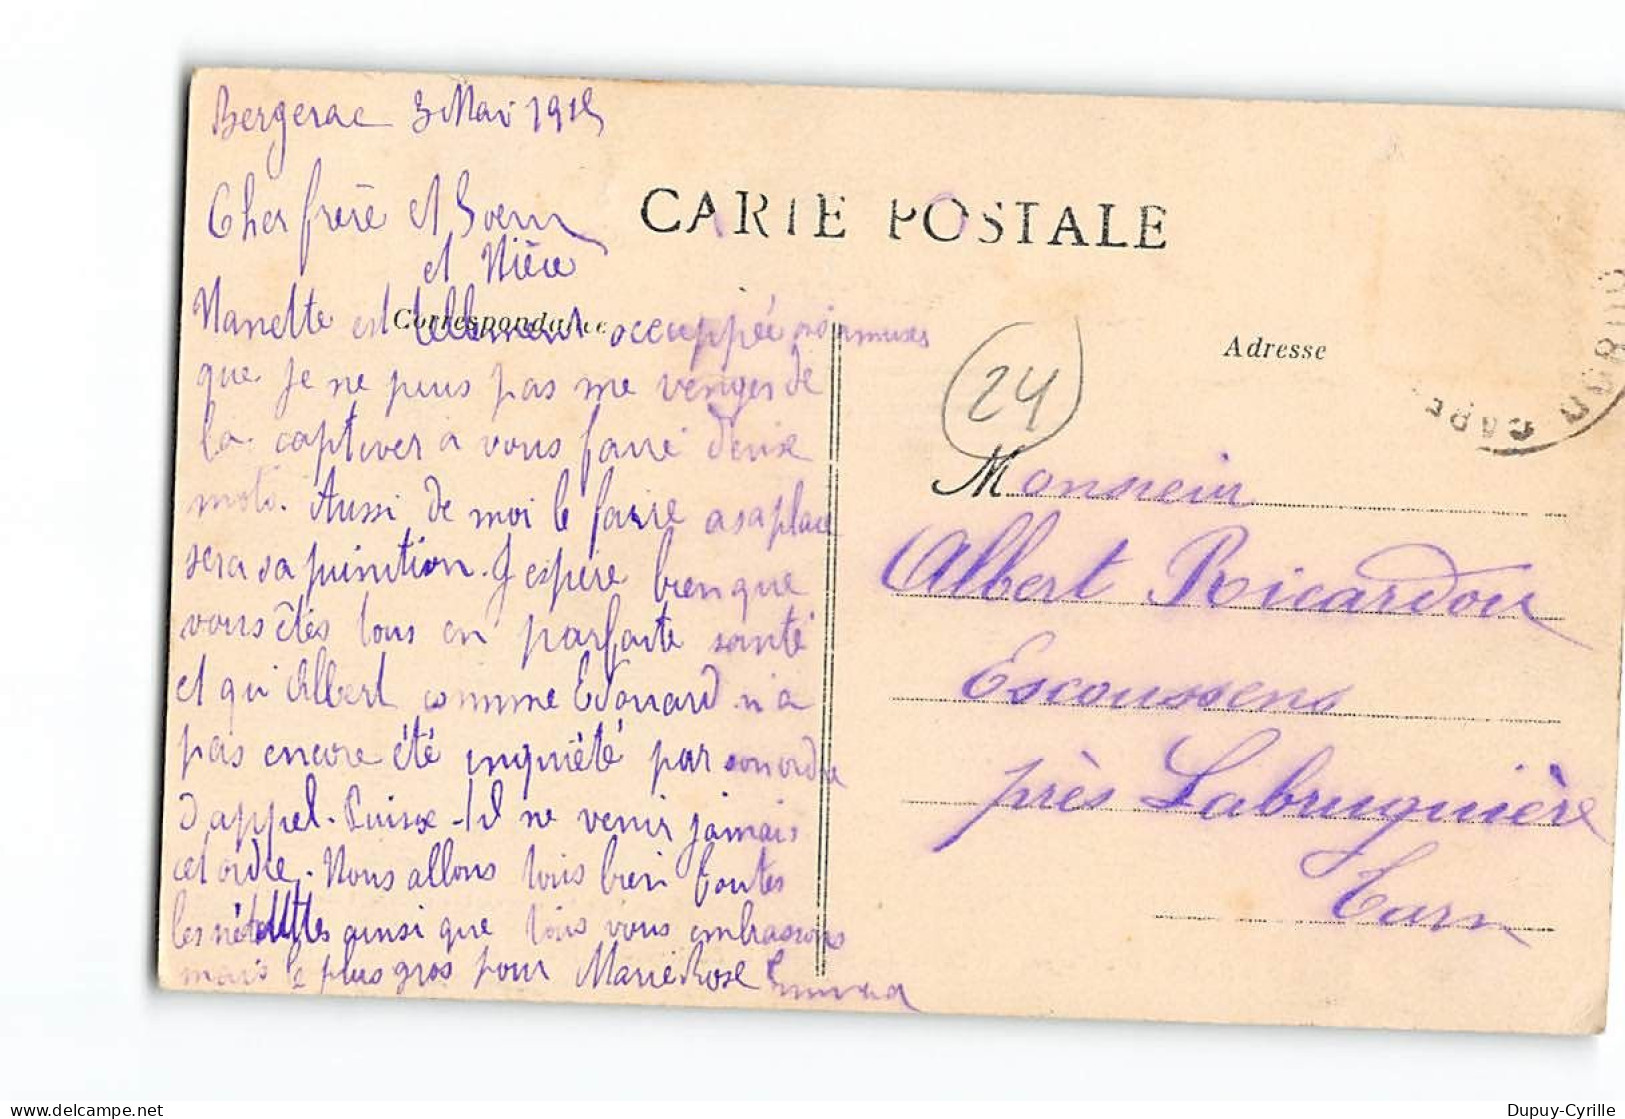 Bergerac 3 Mai 1915
Cher frère et Soeur
et Nièce
CARTE POSTALE
Correspondance
Nanette est tellement occuppée
que je ne puis pas me venger de
la captiver a vous faire deux
mots. Aussi de moi le faire a sa place
sera sa punition. J espère bien que
vous êtes tous en parfaite santé
et qui Albert comme Edouard n a
pas encore été inquiété par son ordre
d appel. Puisse-til ne venir jamais
cet ordre. Nous allons tous bien toutes
les ainsi que tous vous embrassons
mais le plus gros pour Marie Rose Emma
Adresse
24
Monsieur
Albert Ricardou
Escoussens
près Labruguière
Tarn
Dupuy-Cyrille